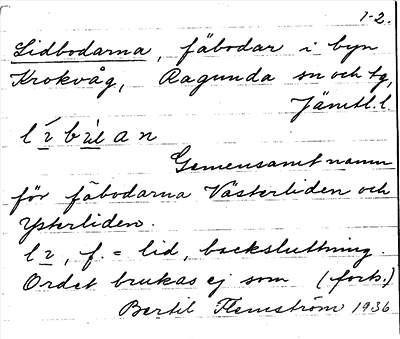 1-2.
Lidbodarna, fäbodar i byn
Krokvåg, Ragunda sn och tg,
Jämtl. l
Gemensamt namn
för fäbodarna Västerliden och
Ysterliden.
f. = lid, backsluttning.
Ordet brukas ej som (forts.)
Bertil Flemström 1936